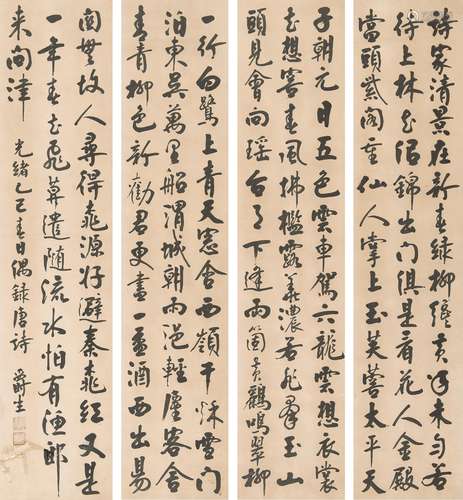 詩家清景在新春綠柳纔黃半未勻若
待上林花似錦出門俱是看花人金殿
當頭紫閣重仙人掌上玉芙蓉太平天
子朝元日五色雲車駕六龍雲想衣裳
花想容春風拂檻露華濃若非羣玉山
頭見會向瑤台月下逢兩箇黃鸝鳴翠柳
一行白鷺上青天窗含西嶺千秋雪門
泊東吳萬里船渭城朝雨浥輕塵客舍
青青柳色新勸君更盡一盃酒西出陽
關無故人尋得桃源好避秦桃紅又是
一年春花飛莫遣隨流水怕有漁郎
來問津 光緒乙巳春日偶錄唐詩 爵生